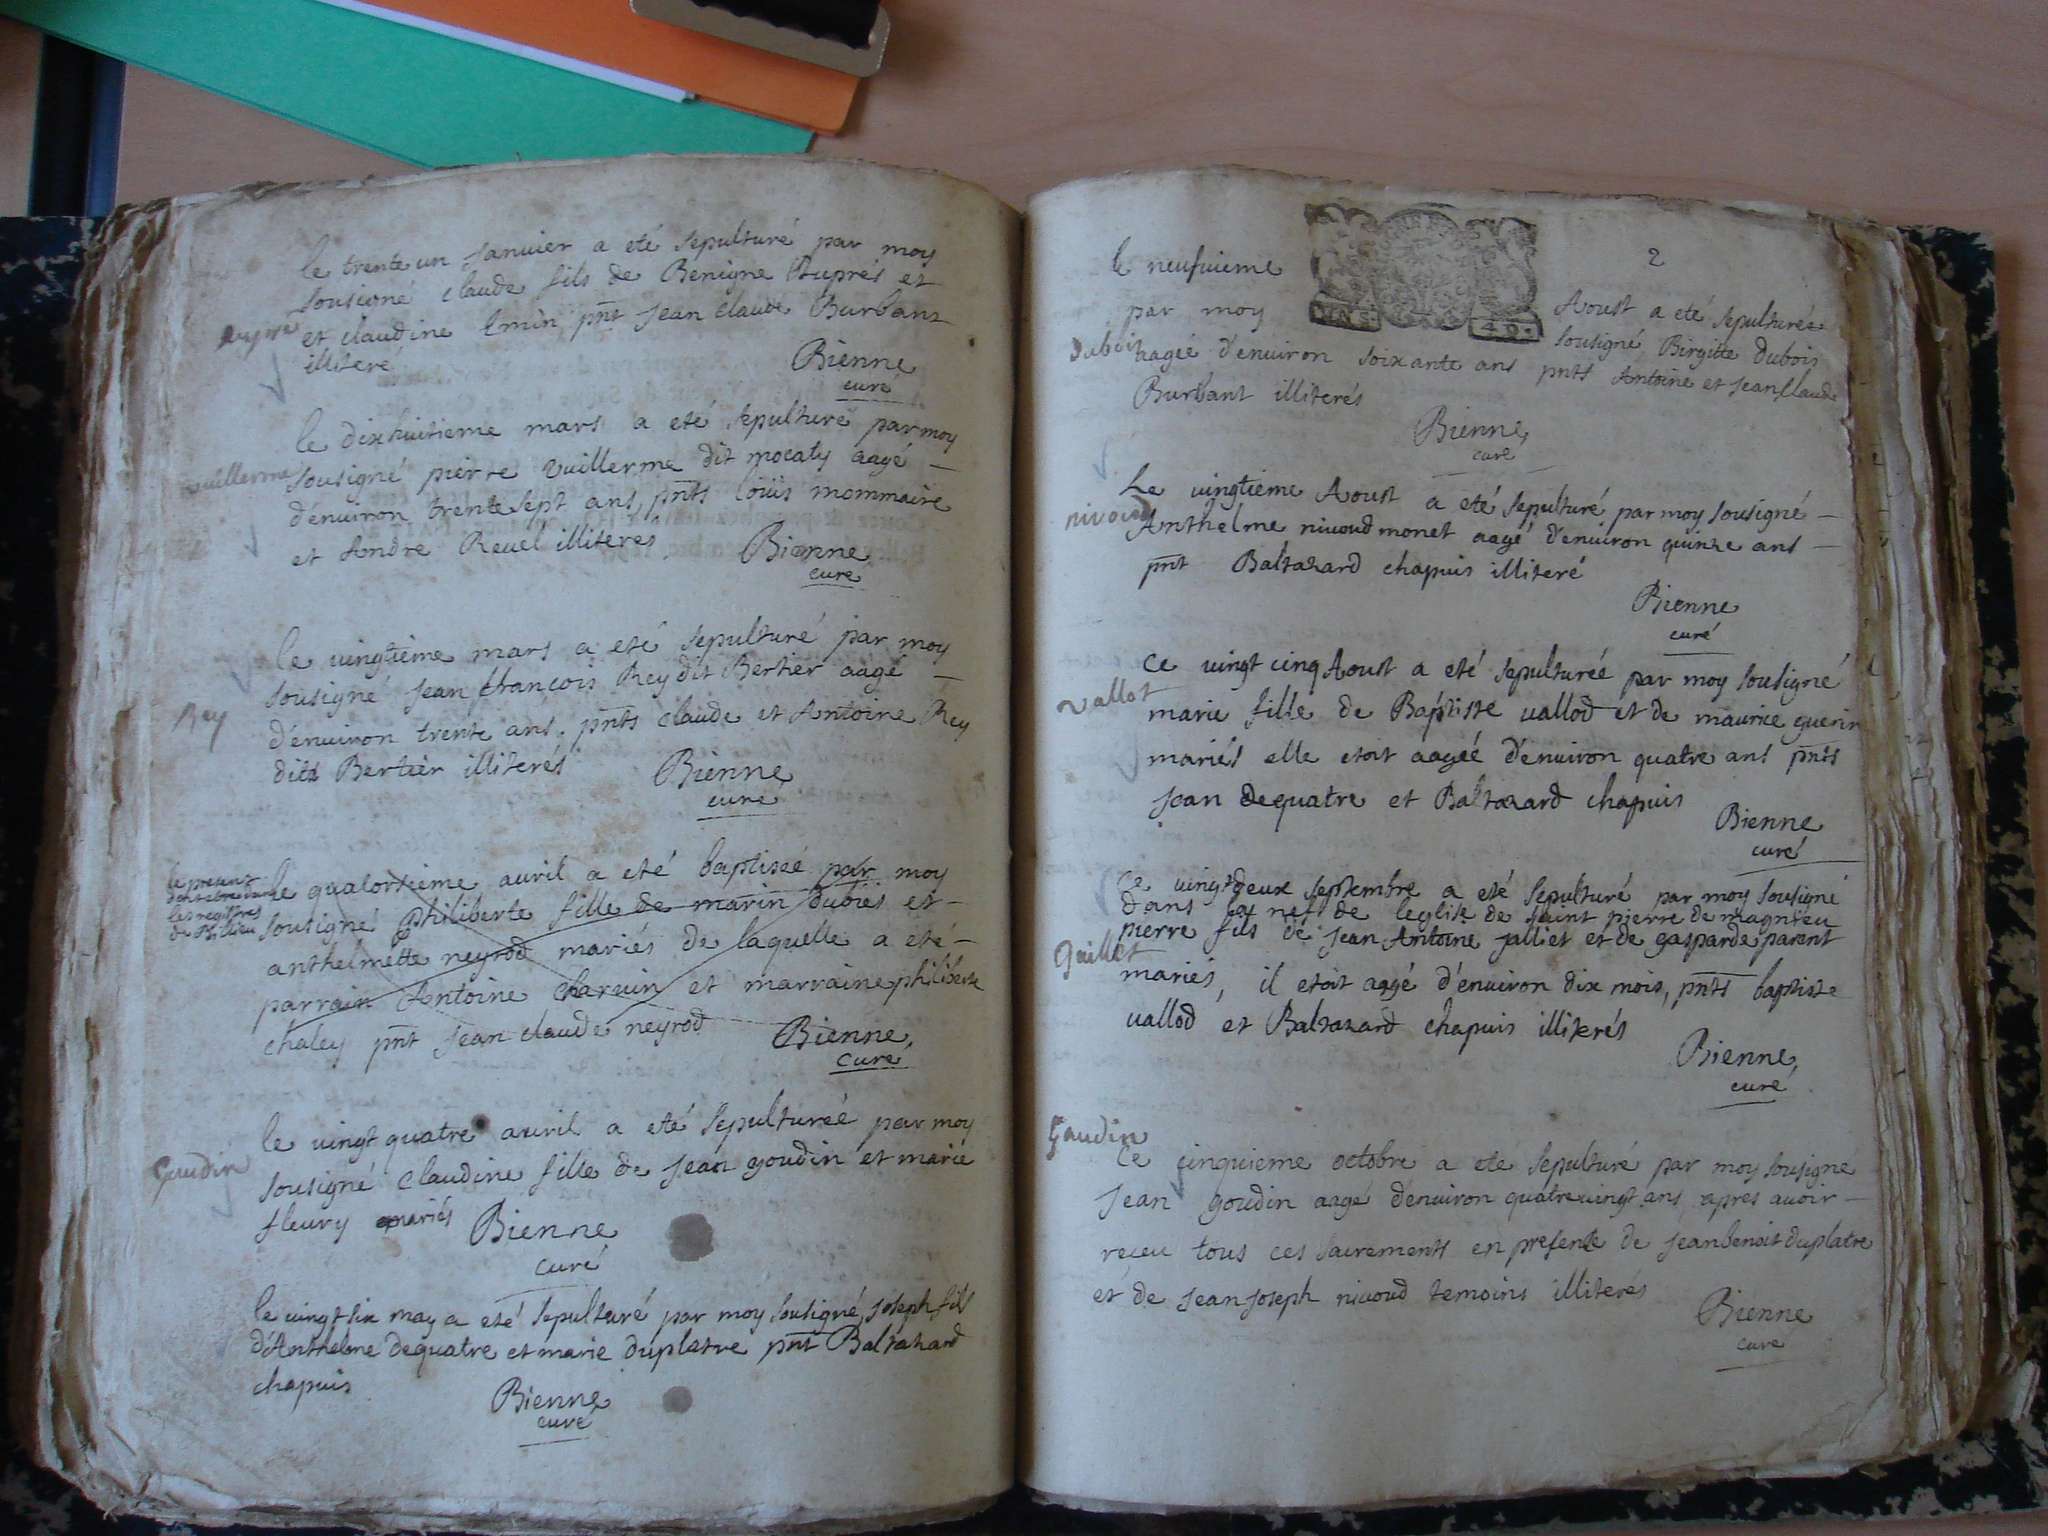 le trente un Janvier a eté sepulturé par moy
sousigné claude fils de Benigne Duprés et
et claudine Emin pnt Jean claude Burbant
illiteré
Bienne
curé
le dixhuitieme mars a eté sepulturé par moy
vuillerme
sousigné pierre vuillerme dit mocaty aagé
d'enuiron trente sept ans, pnts loüis mommaire
et Andre Reuel illiterés
Bienne
curé
le vingtième mars a eté sepulturé par moy
sousigné Jean francois Rey dit Bertier aagé
Rey
d'enuiron trente ans, pnts claude et Antoine Rey
dits Bertier illiterés
Bienne
curé
le present
doit etre dans
les registres
de
le quatortieme auril a eté baptiseé par moy
sousigné philiberte fille de marin dubies et
anthelmette neyrod mariés de laquelle a eté
parrain Antoine charuin et marraine philiberte
chaley pnt Jean claude neyrod
Bienne,
curé
le vingt quatre auril a eté sepultureé par moy
Gaudin
sousigné claudine fille de Jean goudin et marie
fleury mariés
Bienne
curé
le vingt six may a eté sepulturé par moy sousigné, Joseph fils
d'Anthelme dequatre et marie duplatre pnt Baltazard
chapuis
Bienne
curé
2
le neufuieme Aoust a eté sepulturée
par moy sousigné Birgitte dubois
Dubois
aageé d'enuiron soixante ans pnts Antoine et Jean Claude
Burbant illiterés
Bienne,
curé
Le vingtieme Aoust a eté sepulturé par moy sousigné
nivoud
Anthelme niuoud monet aagé d'enuiron quinze ans
pnt Baltazard chapuis illiteré
Bienne
curé
Ce vingt cinq Aoust a eté sepultureé par moy sousigné
vallot
marie fille de Baptiste vallod et de maurice guerin
mariés elle etoit aageé d'enuiron quatre ans pnts
Jean dequatre et Baltazard chapuis
Bienne
curé
Ce vingt deux septembre a eté sepulturé par moy sousigné
dans la nef de leglise de saint pierre de magnieu
pierre fils de Jean Antoine jalliet et de gasparde parent
mariés, il etoit aagé d'enuiron dix mois, pnts baptiste
vallod et Baltazard chapuis illiterés
Bienne,
curé
Gaudin
Ce cinquieme octobre a ete sepulturé par moy sousigné
Jean goudin aagé d'enuiron quatreuingt ans, apres auoir
receu tous ces sacrements en presence de Jean benoit duplatre
et de Jean Joseph niuoud temoins illiterés
Bienne
curé